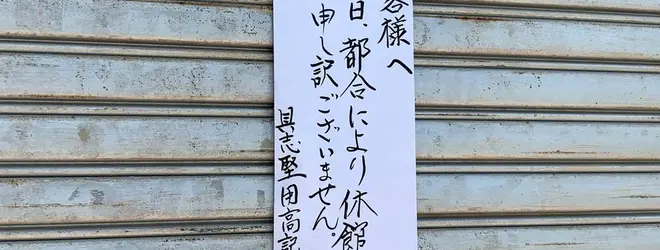 客様へ
日、都合により休館
申し訳ございません。
具志堅用高記